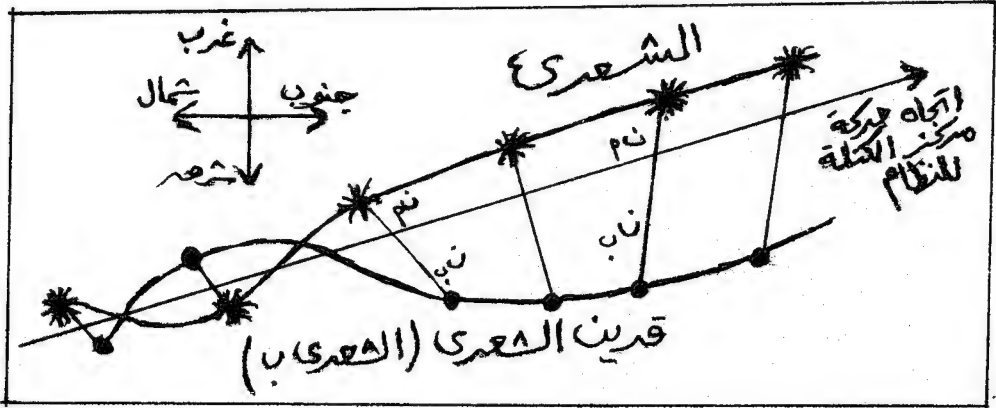 غرب
جنوب
شمال
شرق
الشعرى ٤
اتجاه حركة
مركز الكتلة
للنظام
نم
نم
ناب
ناب
قرين الشعرى (الشعرى ب)